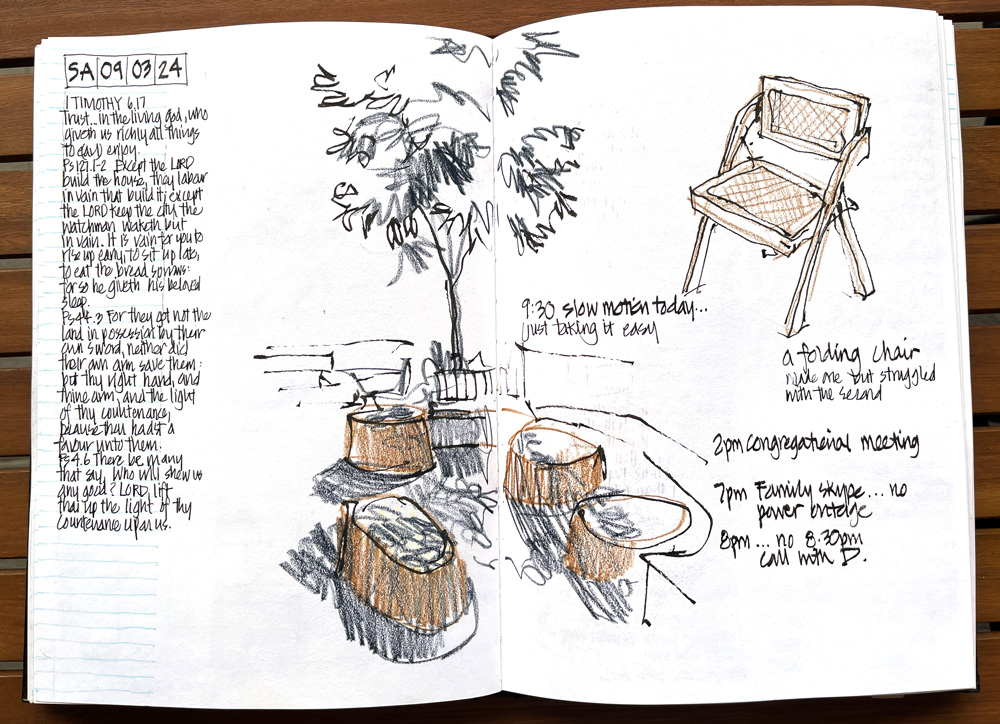 SA 09 03 24
1 TIMOTHY 6.17
Trust... in the living God, who
giveth us richly all things
to enjoy.
Ps 127.1-2 Except the LORD
build the house, they labour
in vain that build it; except
the LORD keep the city, the
watchman waketh but
in vain. It is vain for you to
rise up early, to sit up late,
to eat the bread sorrows:
for so he giveth his beloved
sleep.
Ps 44.3 For they got not the
land in possession by their
own sword, neither did
their own arm save them:
but thy right hand, and
thine arm, and the light
of thy countenance,
because thou hadst a
favour unto them.
Ps 4.6 There be many
that say, Who will shew us
any good? LORD, lift
thou up the light of thy
countenance upon us.
9:30 slow motion today...
just taking it easy
a folding chair
made one but struggled
with the second
2pm congregational meeting
7pm Family skype... no
power outage
8pm... no 8:30pm
call with D.